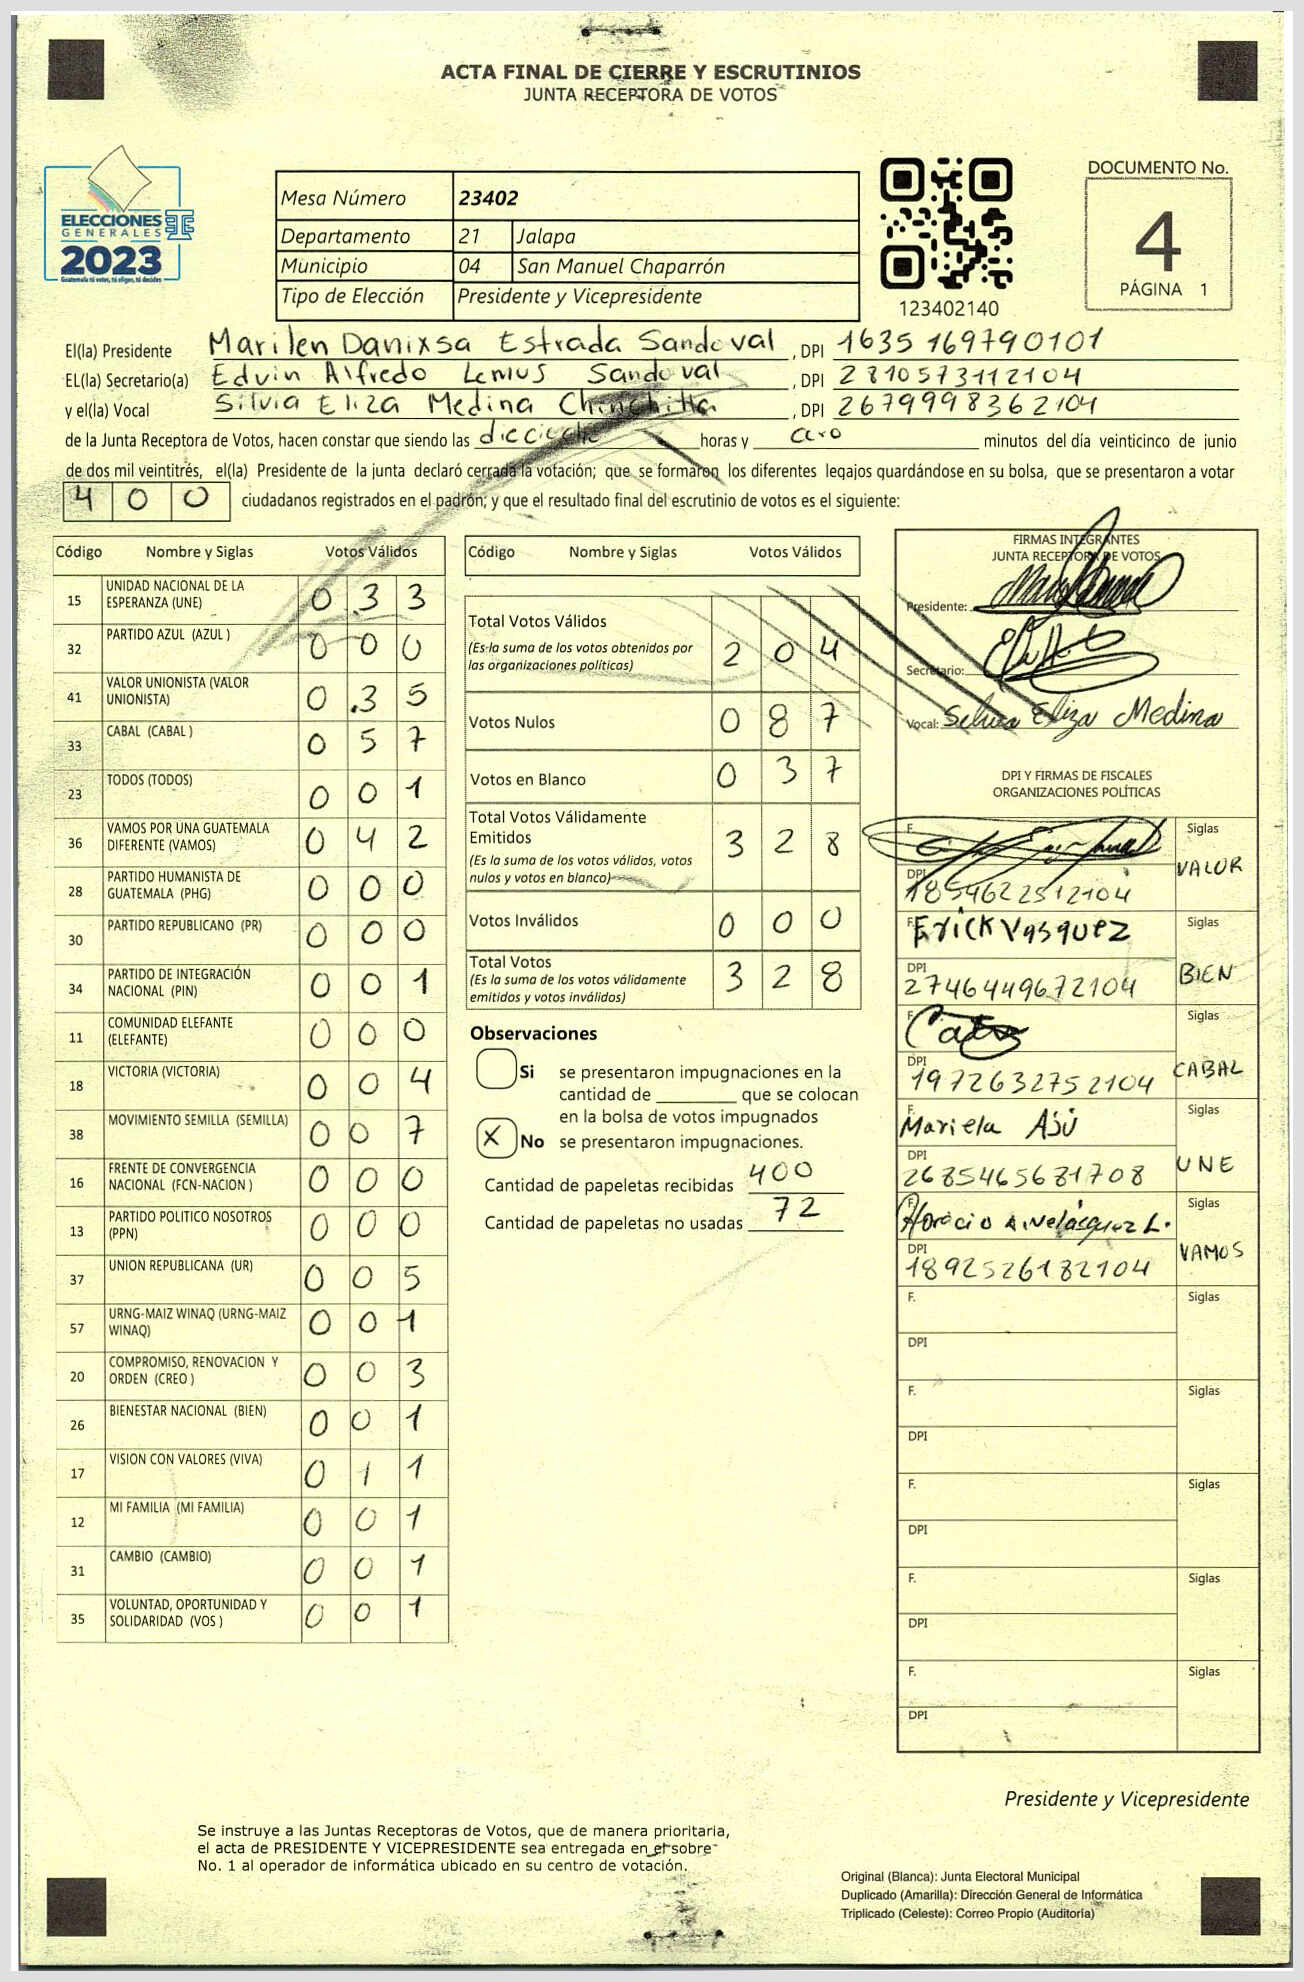 ACTA FINAL DE CIERRE Y ESCRUTINIOS
JUNTA RECEPTORA DE VOTOS
ELECCIONES
GENERALES
2023
Guatemala tú votas, tú eliges, tú decides
Mesa Número 23402
Departamento 21 Jalapa
Municipio 04 San Manuel Chaparrón
Tipo de Elección Presidente y Vicepresidente
123402140
DOCUMENTO No.
4
PÁGINA 1
El(la) Presidente Marilen Danixsa Estrada Sandoval , DPI 1635169790101
EL(la) Secretario(a) Edvin Alfredo Lemus Sandoval , DPI 2810573112104
y el(la) Vocal Silvia Eliza Medina Chinchilla , DPI 2679998362104
de la Junta Receptora de Votos, hacen constar que siendo las dieciocho horas y cero minutos del día veinticinco de junio
de dos mil veintitrés, el(la) Presidente de la junta declaró cerrada la votación; que se formaron los diferentes legajos quardándose en su bolsa, que se presentaron a votar
400 ciudadanos registrados en el padrón; y que el resultado final del escrutinio de votos es el siguiente:
Código Nombre y Siglas Votos Válidos
15 UNIDAD NACIONAL DE LA ESPERANZA (UNE) 033
32 PARTIDO AZUL (AZUL ) 000
41 VALOR UNIONISTA (VALOR UNIONISTA) 035
33 CABAL (CABAL ) 057
23 TODOS (TODOS) 001
36 VAMOS POR UNA GUATEMALA DIFERENTE (VAMOS) 042
28 PARTIDO HUMANISTA DE GUATEMALA (PHG) 000
30 PARTIDO REPUBLICANO (PR) 000
34 PARTIDO DE INTEGRACIÓN NACIONAL (PIN) 001
11 COMUNIDAD ELEFANTE (ELEFANTE) 000
18 VICTORIA (VICTORIA) 004
38 MOVIMIENTO SEMILLA (SEMILLA) 007
16 FRENTE DE CONVERGENCIA NACIONAL (FCN-NACION ) 000
13 PARTIDO POLITICO NOSOTROS (PPN) 000
37 UNION REPUBLICANA (UR) 005
57 URNG-MAIZ WINAQ (URNG-MAIZ WINAQ) 001
20 COMPROMISO, RENOVACION Y ORDEN (CREO ) 003
26 BIENESTAR NACIONAL (BIEN) 001
17 VISION CON VALORES (VIVA) 011
12 MI FAMILIA (MI FAMILIA) 001
31 CAMBIO (CAMBIO) 001
35 VOLUNTAD, OPORTUNIDAD Y SOLIDARIDAD (VOS ) 001
Código Nombre y Siglas Votos Válidos
Total Votos Válidos 204
(Es la suma de los votos obtenidos por
las organizaciones políticas)
Votos Nulos 087
Votos en Blanco 037
Total Votos Válidamente
Emitidos 328
(Es la suma de los votos válidos, votos
nulos y votos en blanco)
Votos Inválidos 000
Total Votos 328
(Es la suma de los votos válidamente
emitidos y votos inválidos)
Observaciones
Si se presentaron impugnaciones en la
cantidad de ________ que se colocan
en la bolsa de votos impugnados
X No se presentaron impugnaciones.
Cantidad de papeletas recibidas 400
Cantidad de papeletas no usadas 72
FIRMAS INTEGRANTES
JUNTA RECEPTORA DE VOTOS
Presidente:
Secretario:
Vocal: Silvia Eliza Medina
DPI Y FIRMAS DE FISCALES
ORGANIZACIONES POLÍTICAS
F. Siglas
DPI 1854622512104 VALOR
F. Erick Vasquez Siglas
DPI 2746449672104 BIEN
F. Siglas
DPI 1972632752104 CABAL
F. Mariela Ajú Siglas
DPI 2685465681708 UNE
F. Horacio A. Velásquez L. Siglas
DPI 1892526182104 VAMOS
F. Siglas
DPI
F. Siglas
DPI
F. Siglas
DPI
F. Siglas
DPI
F. Siglas
DPI
Presidente y Vicepresidente
Se instruye a las Juntas Receptoras de Votos, que de manera prioritaria,
el acta de PRESIDENTE Y VICEPRESIDENTE sea entregada en el sobre
No. 1 al operador de informática ubicado en su centro de votación.
Original (Blanca): Junta Electoral Municipal
Duplicado (Amarilla): Dirección General de Informática
Triplicado (Celeste): Correo Propio (Auditoría)